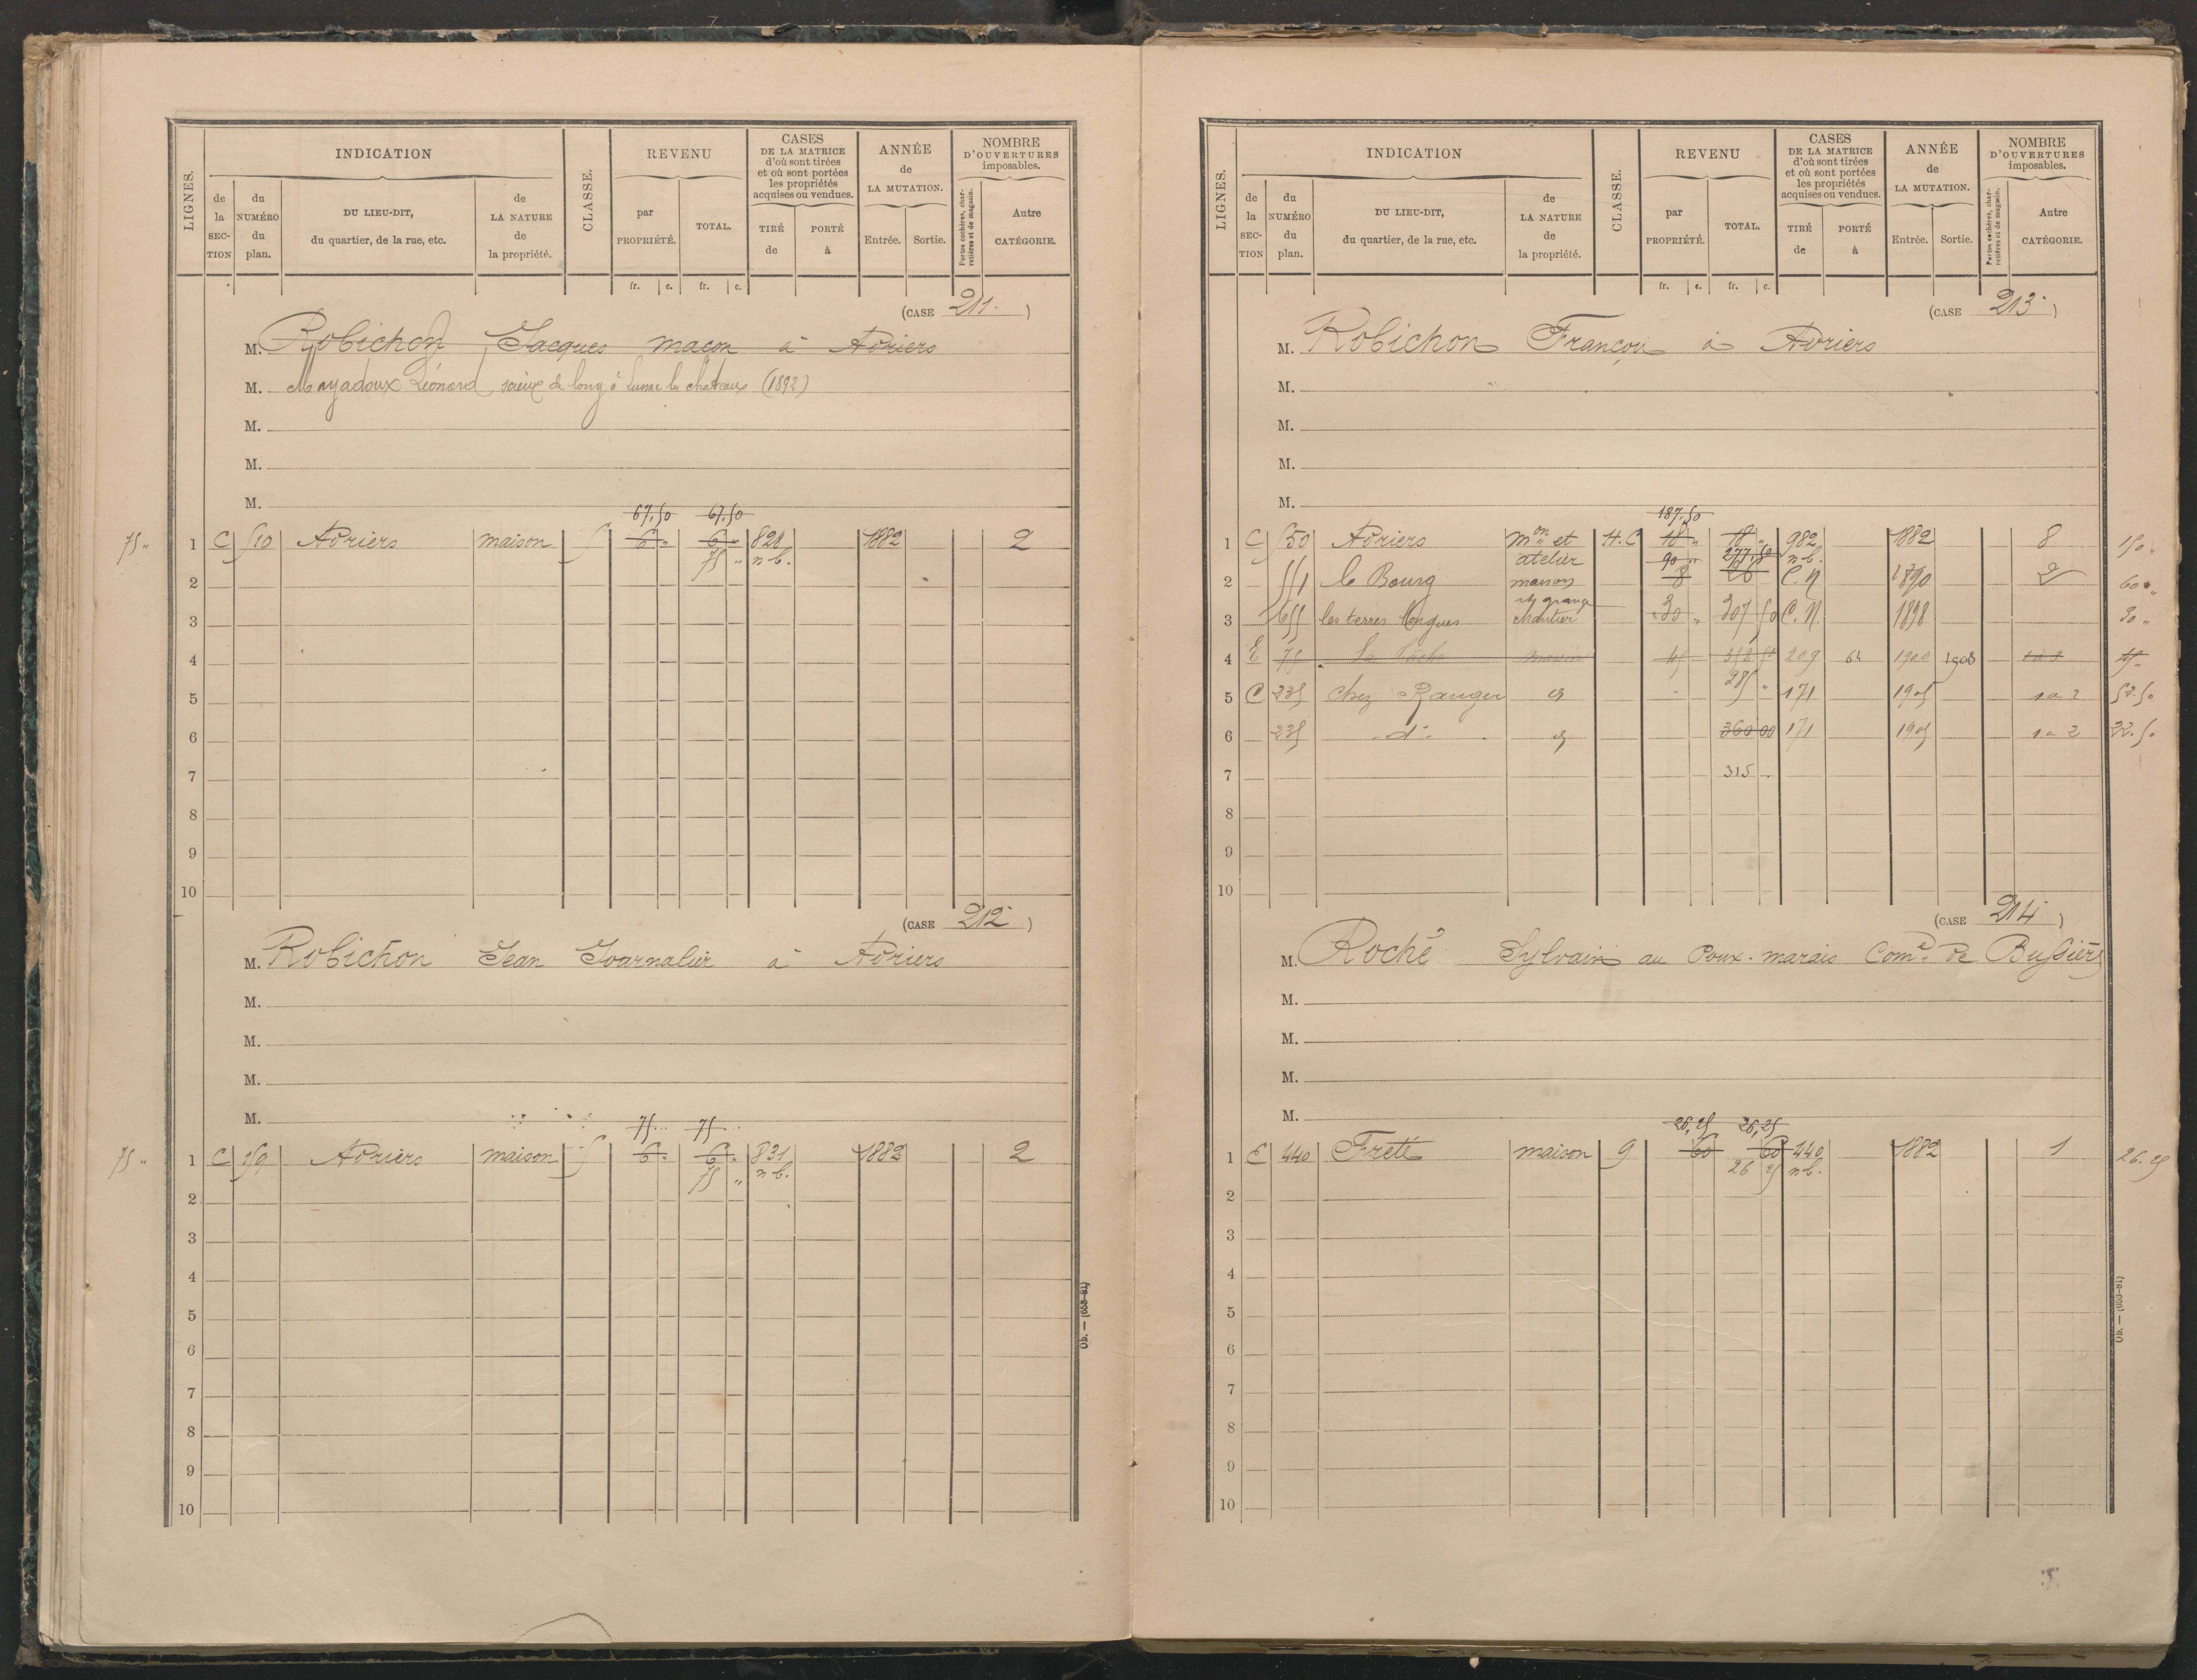 LIGNES.
INDICATION
de la SECTION
du NUMÉRO du plan.
DU LIEU-DIT, du quartier, de la rue, etc.
de LA NATURE de la propriété.
CLASSE.
REVENU
par PROPRIÉTÉ.
TOTAL.
fr. c. fr. c.
CASES DE LA MATRICE d'où sont tirées et où sont portées les propriétés acquises ou vendues.
TIRÉ de
PORTÉ à
ANNÉE de LA MUTATION.
Entrée. Sortie.
NOMBRE D'OUVERTURES imposables.
Portes cochères, charretières et de magasin.
Autre CATÉGORIE.
(CASE 211)
M. Robichon Jacques maçon à Adriers
M. Mayadoux Léonard scieur de long à Lussac les chateaux (1892)
M.
M.
M.
67,50 67,50
75 " 1 C 510 Adriers maison 5 6 " 6 " 821 1882 2
75 " n-b.
2
3
4
5
6
7
8
9
10
(CASE 212)
M. Robichon Jean Journalier à Adriers
M.
M.
M.
M.
75 75
75 " 1 C 519 Adriers maison 5 6 " 6 " 831 1882 2
75 " n-b.
2
3
4
5
6
7
8
9
10
Ob. — (653-81)
LIGNES.
INDICATION
de la SECTION
du NUMÉRO du plan.
DU LIEU-DIT, du quartier, de la rue, etc.
de LA NATURE de la propriété.
CLASSE.
REVENU
par PROPRIÉTÉ.
TOTAL.
fr. c. fr. c.
CASES DE LA MATRICE d'où sont tirées et où sont portées les propriétés acquises ou vendues.
TIRÉ de
PORTÉ à
ANNÉE de LA MUTATION.
Entrée. Sortie.
NOMBRE D'OUVERTURES imposables.
Portes cochères, charretières et de magasin.
Autre CATÉGORIE.
(CASE 213)
M. Robichon François à Adriers
M.
M.
M.
M.
187,50
1 C 550 Adriers mon et H.C 18 " 18 " 982 1882 8 150 "
atelier 90 " 277,50 n-b.
2 551 le Bourg maison 8 26 C.N 1890 2 60 "
et grange
3 655 les terres longues chantier 30 " 307 50 C.N. 1898 30 "
4 E 75 maison 45 352 50 209 1900 1908 45 "
285 "
5 C 235 Chez Ranger 171 1905 1 a 2 52.50
6 235 do 360 00 171 1905 1 a 2 22.50
7 315 -
8
9
10
(CASE 214)
M. Roché Sylvain au Poux-marais Come de Bussière
M.
M.
M.
M.
26,25 26,25
1 E 440 Freté maison 9 60 60 440 1882 1 26.25
26 25 n-b.
2
3
4
5
6
7
8
9
10
Ob. — (653-81)